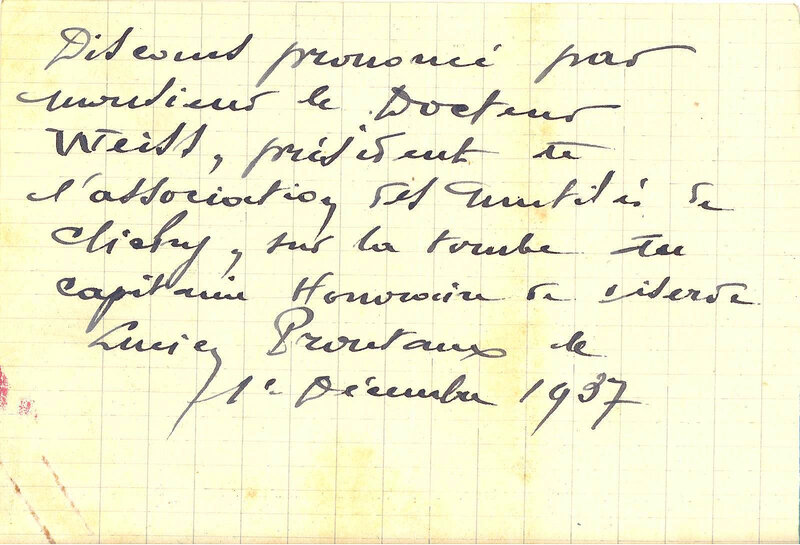 Discours prononcé par
monsieur le Docteur
Weiss, président de
l'association des mutilés de
Clichy, sur la tombe du
capitaine Honoraire de réserve
Lucien Proutaux le
1er Décembre 1937